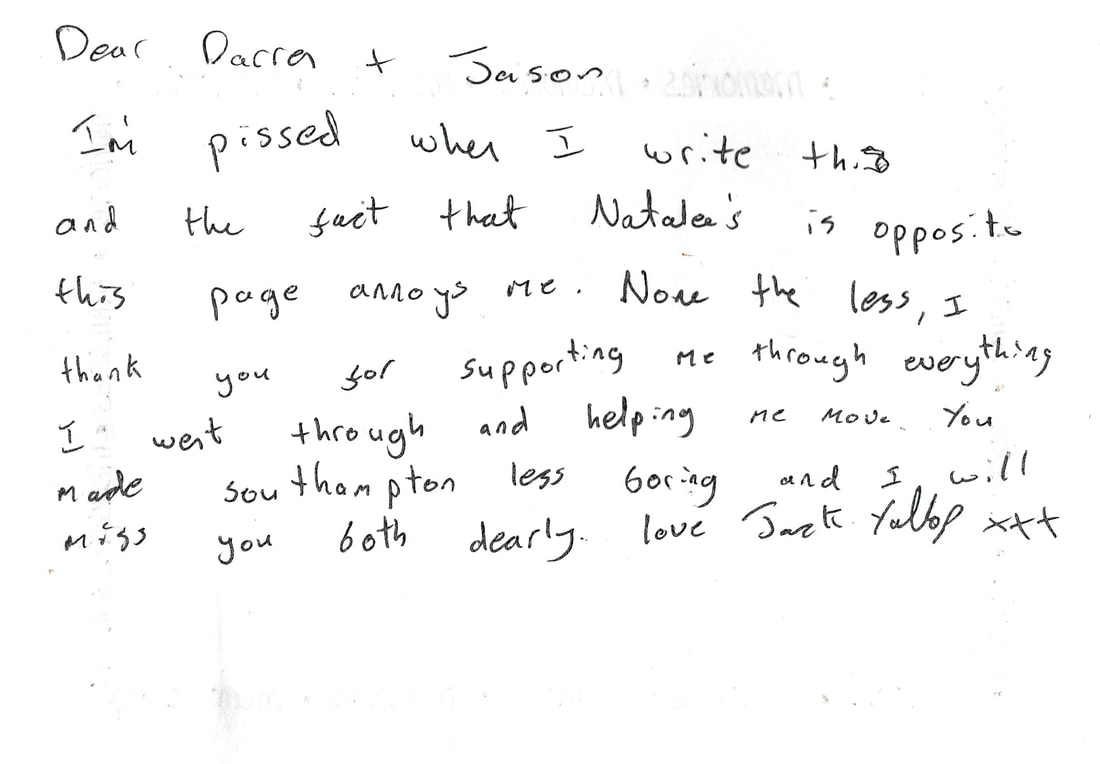 Dear Darren + Jason
I'm pissed when I write this
and the fact that Natalee's is opposite
this page annoys me. None the less, I
thank you for supporting me through everything
I went through and helping me move. You
made southampton less boring and I will
miss you both dearly. love Jack Yallop xxx